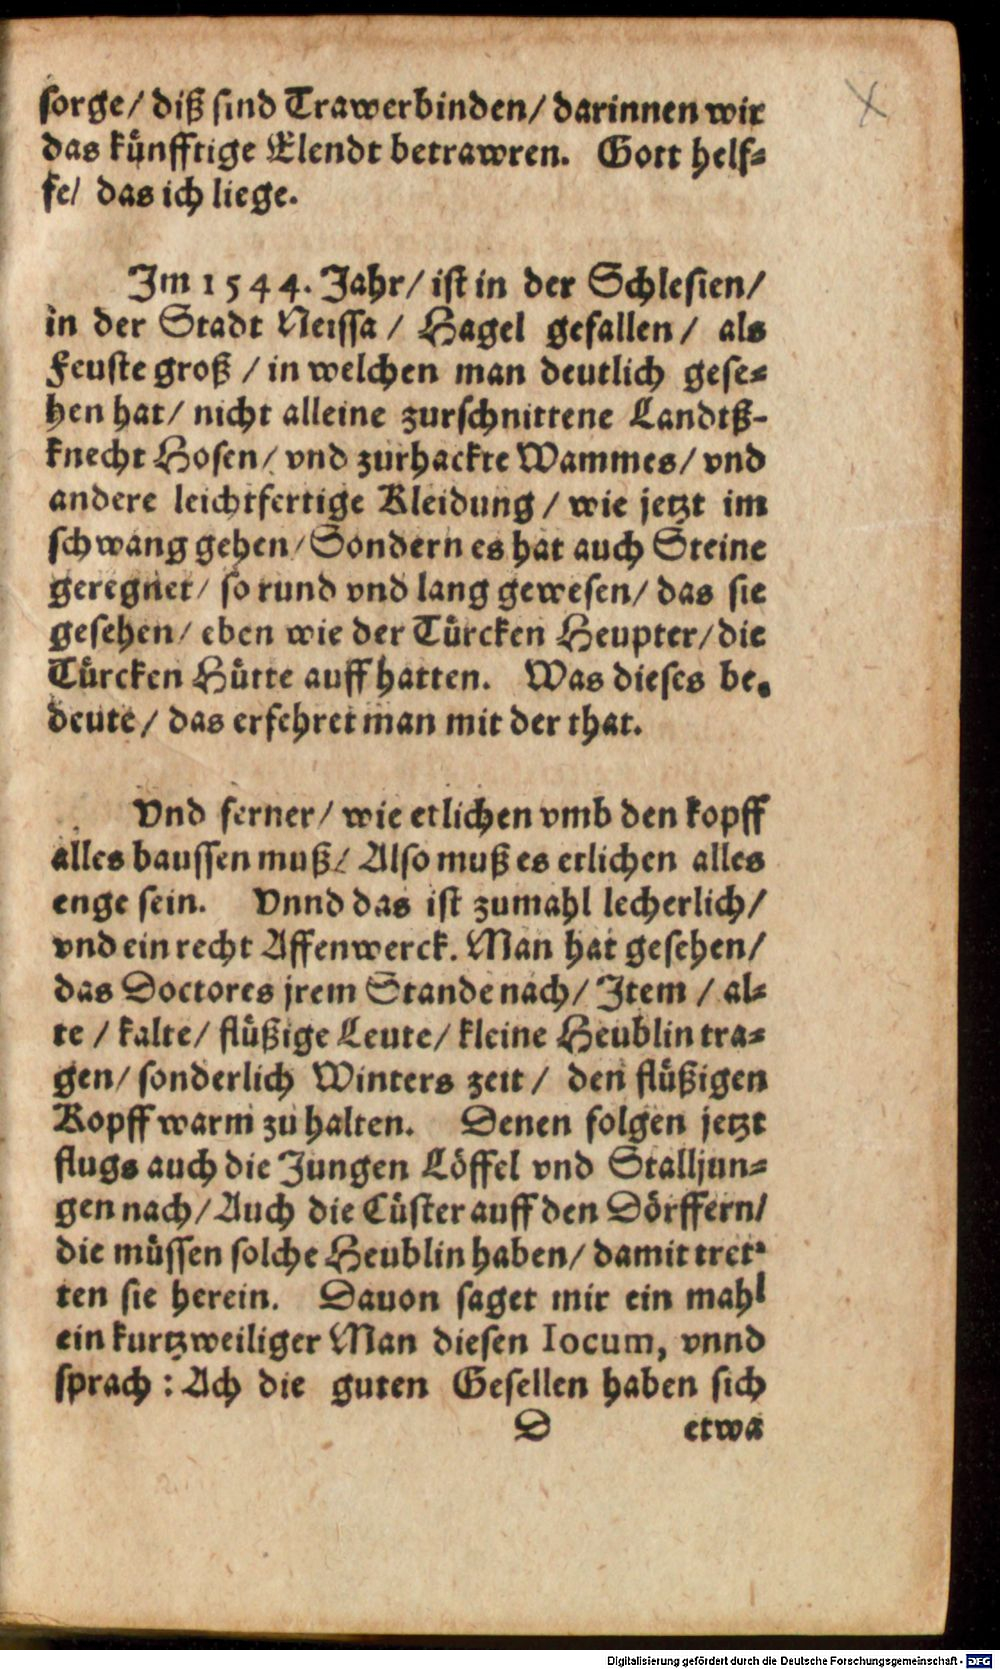 sorge/ diß sind Trawerbinden/ darinnen wir
das künfftige Elendt betrawren. Gott helf-
fe/ das ich liege.
Im 1544. Jahr/ ist in der Schlesien/
in der Stadt Neissa/ Hagel gefallen/ als
Feuste groß/ in welchen man deutlich gese-
hen hat/ nicht alleine zurschnittene Landtß-
knecht Hosen/ vnd zurhackte Wammes/ vnd
andere leichtfertige Kleidung/ wie jetzt im
schwang gehen/ Sondern es hat auch Steine
geregnet/ so rund vnd lang gewesen/ das sie
gesehen/ eben wie der Türcken Heupter/ die
Türcken Hütte auff hatten. Was dieses be-
deute/ das erfehret man mit der that.
Vnd ferner/ wie etlichen vmb den kopff
alles baussen muß/ Also muß es etlichen alles
enge sein. Vnnd das ist zumahl lecherlich/
vnd ein recht Affenwerck. Man hat gesehen/
das Doctores jrem Stande nach/ Item/ al-
te/ kalte/ flüßige Leute/ kleine Heublin tra-
gen/ sonderlich Winters zeit/ den flüßigen
Kopff warm zu halten. Denen folgen jetzt
flugs auch die Jungen Löffel vnd Stalljun-
gen nach/ Auch die Cüster auff den Dörffern/
die müssen solche Heublin haben/ damit tret-
ten sie herein. Dauon saget mir ein mahl
ein kurtzweiliger Man diesen Iocum, vnnd
sprach: Ach die guten Gesellen haben sich
D etwa
Digitalisierung gefördert durch die Deutsche Forschungsgemeinschaft - DFG